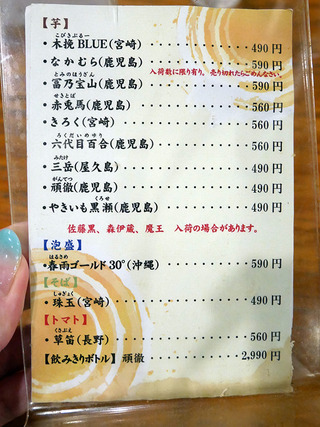 【芋】
こびきぶるー
・木挽 BLUE(宮崎)・・・・・・・・・・・・490円
・なかむら(鹿児島)・・・・・・・・・・590円
とみのほうざん 入荷数に限り有り。売り切れたらごめんなさい。
・冨乃宝山(鹿児島)・・・・・・・・・・590円
せきとば
・赤兎馬(鹿児島)・・・・・・・・・・・560円
・きろく(宮崎)・・・・・・・・・・・・・560円
ろくだいめゆり
・六代目百合(鹿児島)・・・・・・・・560円
みたけ
・三岳(屋久島)・・・・・・・・・・・・・490円
がんてつ
・頑徹(鹿児島)・・・・・・・・・・・・・490円
くろせ
・やきいも黒瀬(鹿児島)・・・・・・490円
佐藤黒、森伊蔵、魔王 入荷の場合があります。
【泡盛】
はるさめ
・春雨ゴールド30°(沖縄)・・・・・・・590円
【そば】
しゅぎょく
・珠玉(宮崎)・・・・・・・・・・・・・・490円
【トマト】
くさぶえ
・草笛(長野)・・・・・・・・・・・・・・560円
【飲みきりボトル】頑徹・・・・・・・2,990円